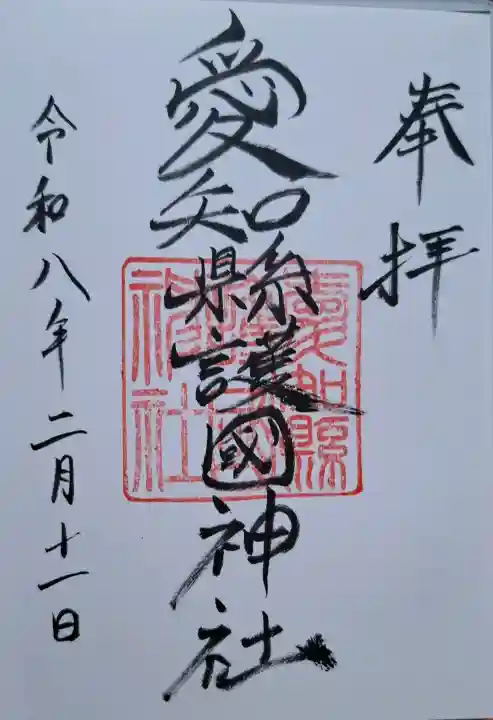 奉拝
愛知縣護國神社
愛知縣
神社
令和八年二月十一日